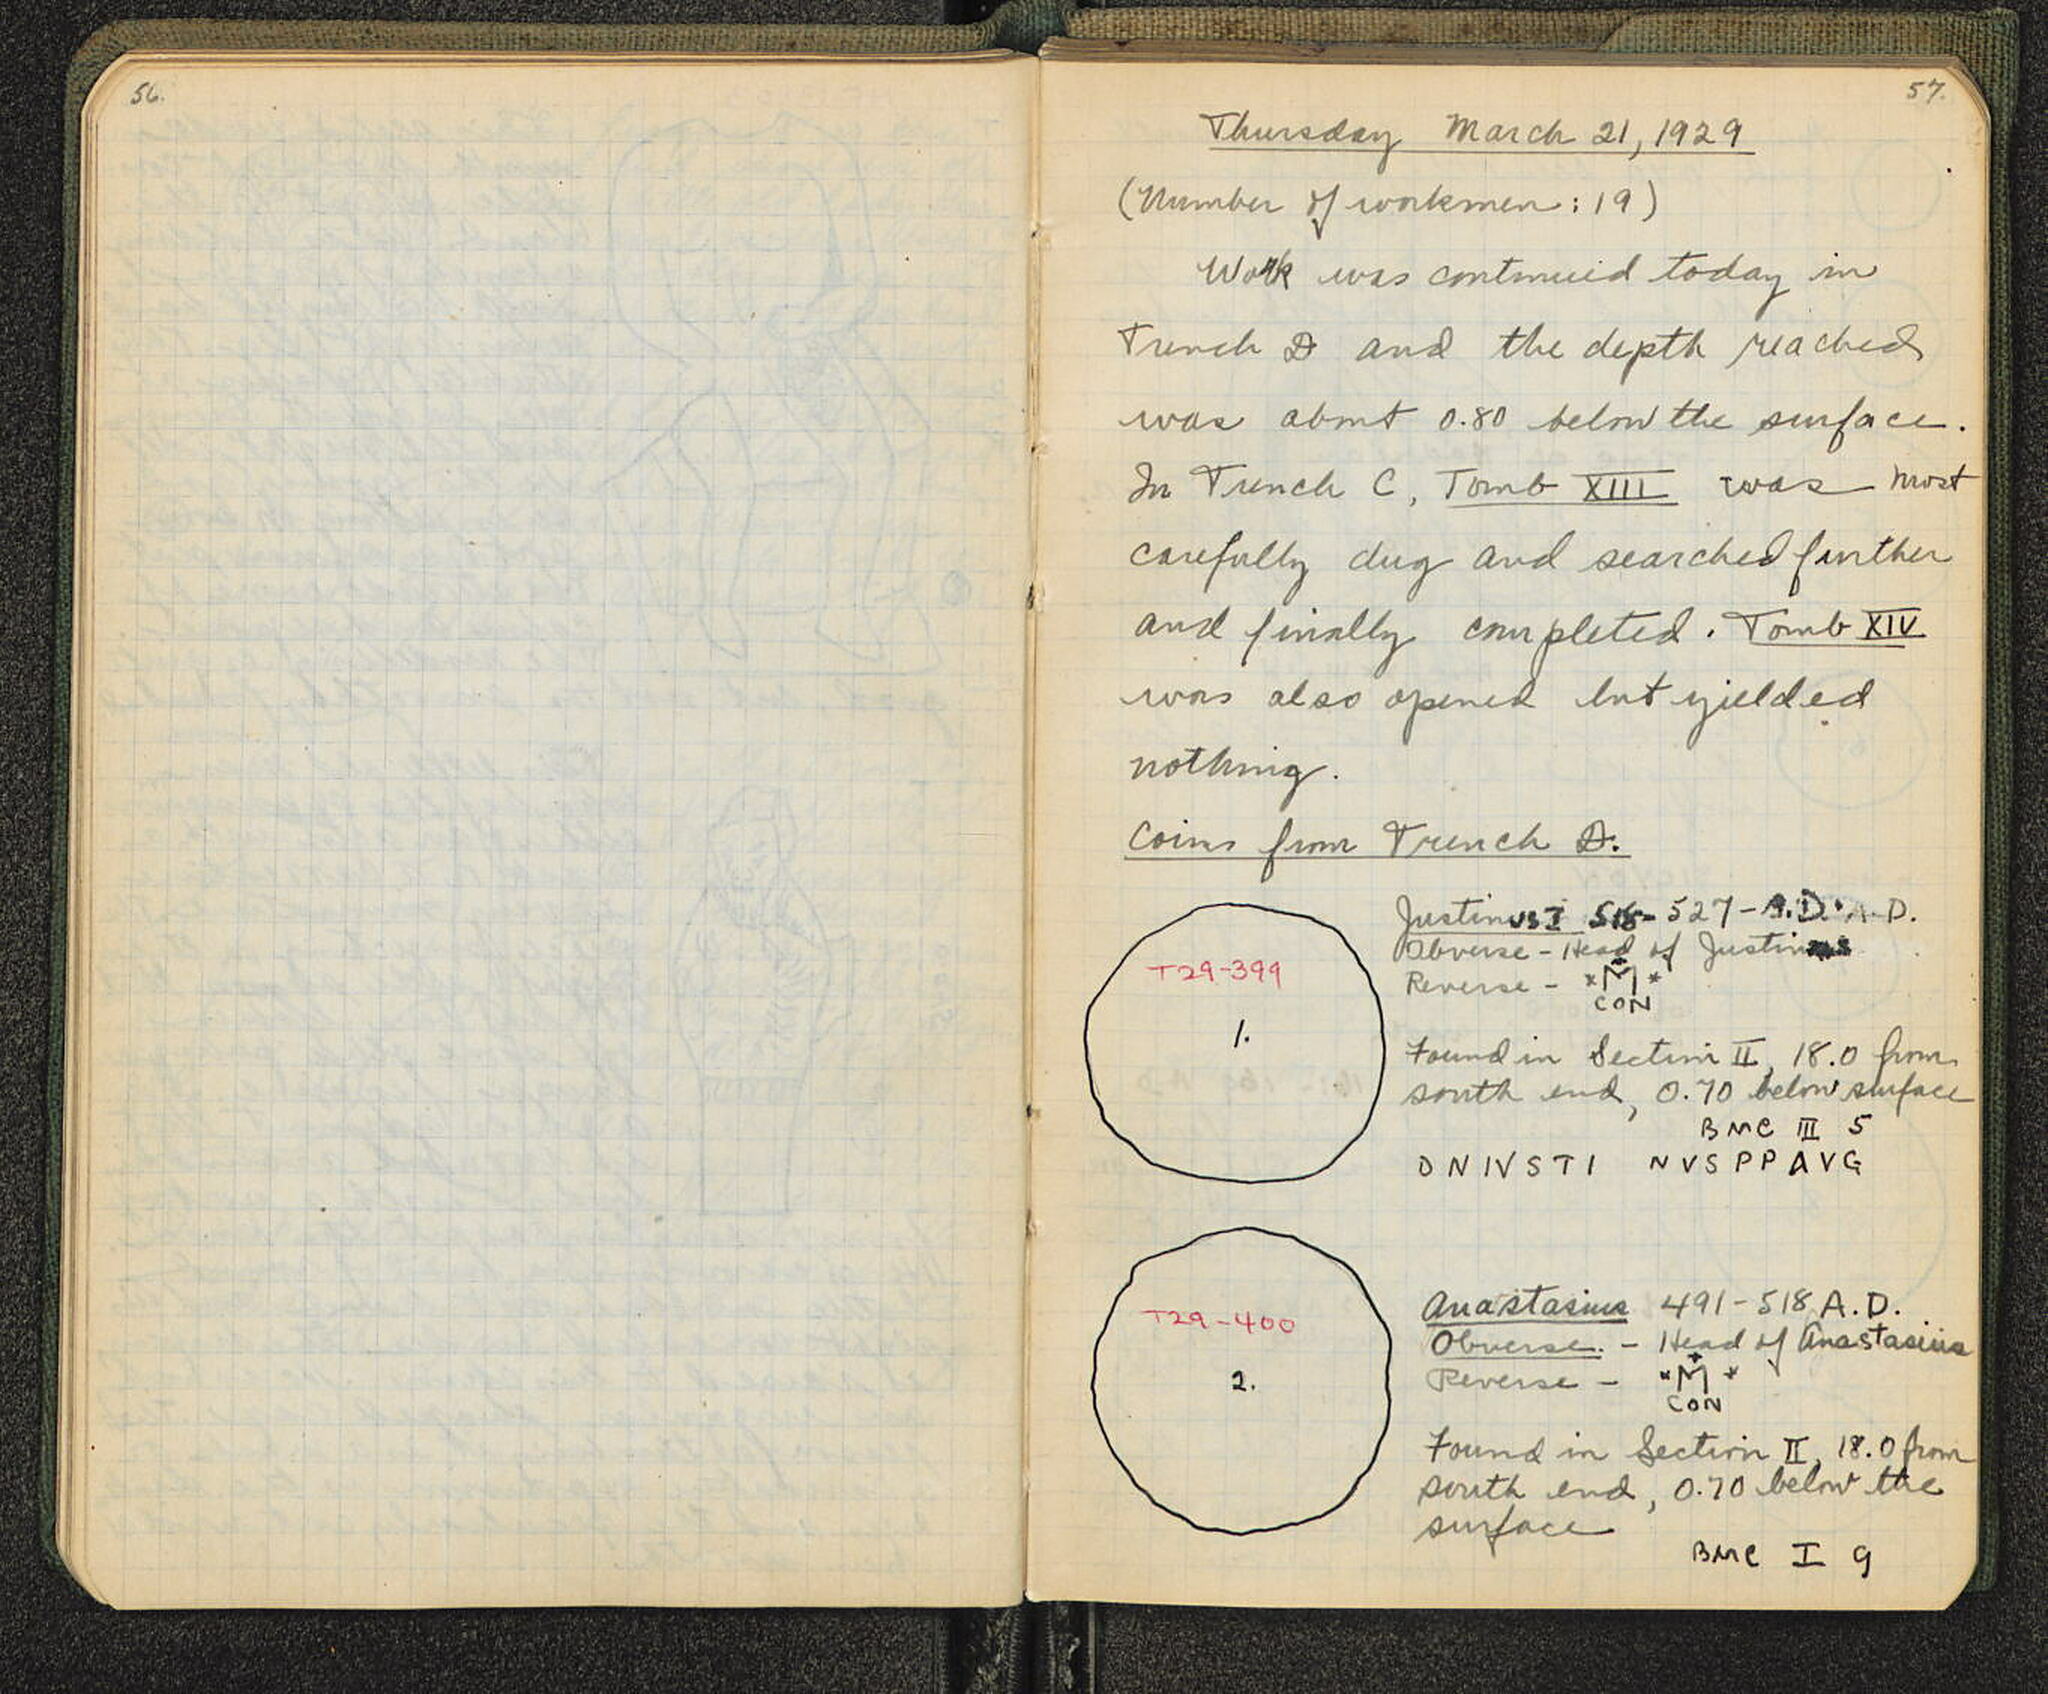 56.
57.
Thursday March 21, 1929
(Number of workmen: 19)
Work was continued today in
Trench D and the depth reached
was about 0.80 below the surface.
In Trench C, Tomb XIII was most
carefully dug and searched further
and finally completed. Tomb XIV
was also opened but yielded
nothing.
Coins from Trench D.
T29-399
1.
Justinus I 518-527- A.D. A.D.
Obverse - Head of Justinus
Reverse - *M*
CON
Found in Section II, 18.0 from
south end, 0.70 below surface
BMC III 5
DNIVSTI NVSPPAVG
T29-400
2.
Anastasius 491-518 A.D.
Obverse. - Head of Anastasius
Reverse - *M*
CON
Found in Section II, 18.0 from
south end, 0.70 below the
surface
BMC I 9